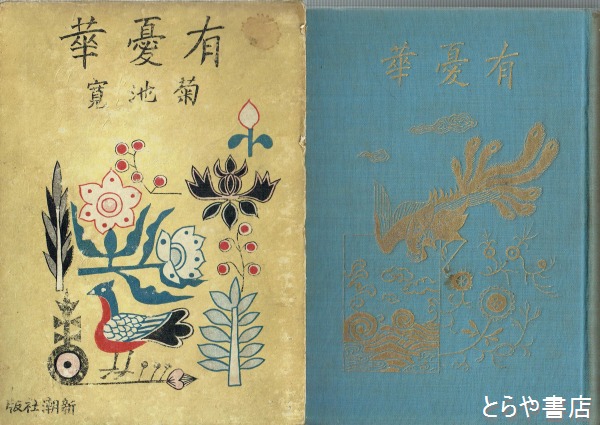 有憂華
菊池寛
新潮社版
有憂華
とらや書店